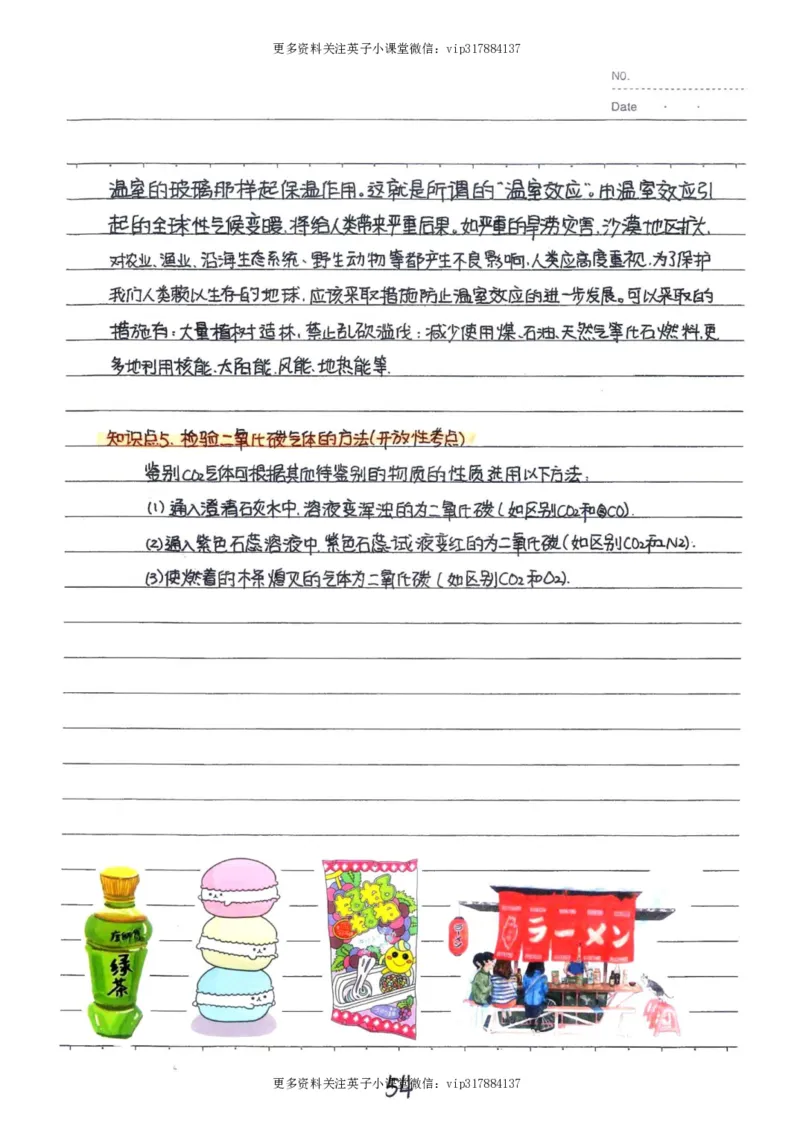 更多资料关注英子小课堂微信：vip317884137
NO.
Date
温室的玻璃那样起保温作用。这就是所谓的“温室效应”。由温室效应引
起的全球性气候变暖，将给人类带来严重后果。如严重的旱涝灾害，沙漠地区扩大，
对农业、渔业、沿海生态系统、野生动物等都产生不良影响，人类应高度重视，为了保护
我们人类赖以生存的地球，应该采取措施防止温室效应的进一步发展。可以采取的
措施有：大量植树造林，禁止乱砍滥伐：减少使用煤、石油、天然气等化石燃料，更
多地利用核能、太阳能、风能、地热能等.
知识点5、检验二氧化碳气体的方法(开放性考点)
鉴别CO2气体可根据其他待鉴别的物质的性质选用以下方法：
(1)通入澄清石灰水中，溶液变浑浊的为二氧化碳(如区别CO2和CO).
(2)通入紫色石蕊溶液中，紫色石蕊试液变红的为二氧化碳(如区别CO2和N2).
(3)使燃着的木条熄灭的气体为二氧化碳(如区别CO2和O2).
绿茶
ラーメン
ラーメン
54
更多资料关注英子小课堂微信：vip317884137